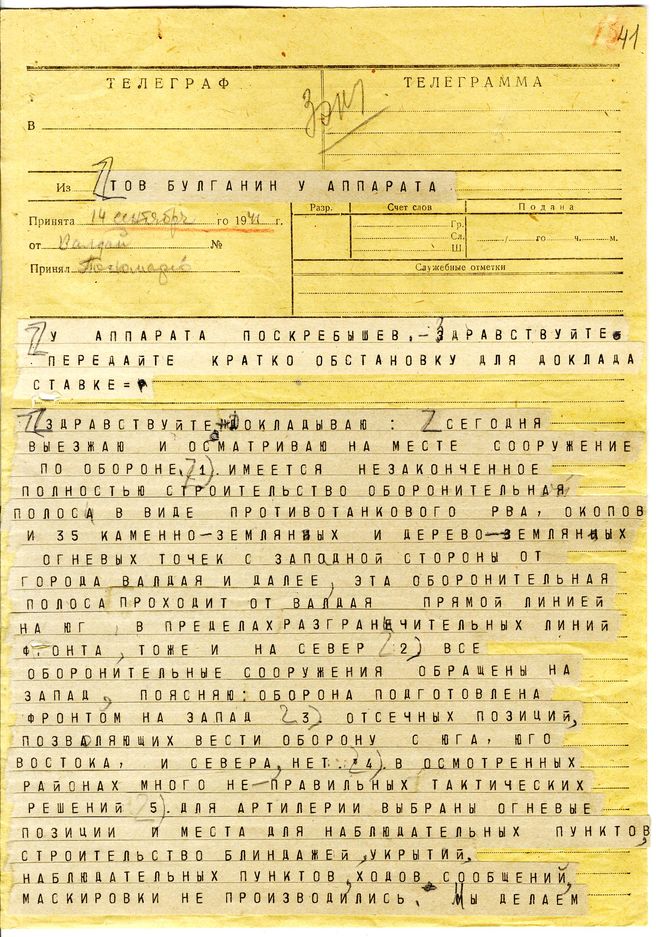 41
ТЕЛЕГРАФ ТЕЛЕГРАММА
В
Из ТОВ БУЛГАНИН У АППАРАТА
Принята 14 сентября го 1941 г.
Разр. Счет слов Подана
Гр.
от Валдай №
Сл. / го ч. м.
Ш
Принял
Служебные отметки
У АППАРАТА ПОСКРЕБЫШЕВ,—ЗДРАВСТВУЙТЕ
ПЕРЕДАЙТЕ КРАТКО ОБСТАНОВКУ ДЛЯ ДОКЛАДА
СТАВКЕ=
ЗДРАВСТВУЙТЕ ДОКЛАДЫВАЮ : СЕГОДНЯ
ВЫЕЗЖАЮ И ОСМАТРИВАЮ НА МЕСТЕ СООРУЖЕНИЕ
ПО ОБОРОНЕ, 1). ИМЕЕТСЯ НЕЗАКОНЧЕННОЕ
ПОЛНОСТЬЮ СТРОИТЕЛЬСТВО ОБОРОНИТЕЛЬНАЯ
ПОЛОСА В ВИДЕ ПРОТИВОТАНКОВОГО РВА, ОКОПОВ
И 35 КАМЕННО-ЗЕМЛЯНЫХ И ДЕРЕВО-ЗЕМЛЯННЫХ
ОГНЕВЫХ ТОЧЕК С ЗАПАДНОЙ СТОРОНЫ ОТ
ГОРОДА ВАЛДАЯ И ДАЛЕЕ, ЭТА ОБОРОНИТЕЛЬНАЯ
ПОЛОСА ПРОХОДИТ ОТ ВАЛДАЯ ПРЯМОЙ ЛИНИЕЙ
НА ЮГ , В ПРЕДЕЛАХ РАЗГРАНИЧИТЕЛЬНЫХ ЛИНИЙ
ФРОНТА , ТОЖЕ И НА СЕВЕР 2) ВСЕ
ОБОРОНИТЕЛЬНЫЕ СООРУЖЕНИЯ ОБРАЩЕНЫ НА
ЗАПАД, ПОЯСНЯЮ: ОБОРОНА ПОДГОТОВЛЕНА
ФРОНТОМ НА ЗАПАД 3). ОТСЕЧНЫХ ПОЗИЦИЙ,
ПОЗВАЛЯЮЩИХ ВЕСТИ ОБОРОНУ С ЮГА, ЮГО
ВОСТОКА, И СЕВЕРА, НЕТ. 4). В ОСМОТРЕННЫХ
РАЙОНАХ МНОГО НЕ-ПРАВИЛЬНЫХ ТАКТИЧЕСКИХ
РЕШЕНИЙ 5). ДЛЯ АРТИЛЕРИИ ВЫБРАНЫ ОГНЕВЫЕ
ПОЗИЦИИ И МЕСТА ДЛЯ НАБЛЮДАТЕЛЬНЫХ ПУНКТОВ,
СТРОИТЕЛЬСТВО БЛИНДАЖЕЙ, УКРЫТИЙ,
НАБЛЮДАТЕЛЬНЫХ ПУНКТОВ, ХОДОВ СООБЩЕНИЙ,
МАСКИРОВКИ НЕ ПРОИЗВОДИЛИСЬ. МЫ ДЕЛАЕМ